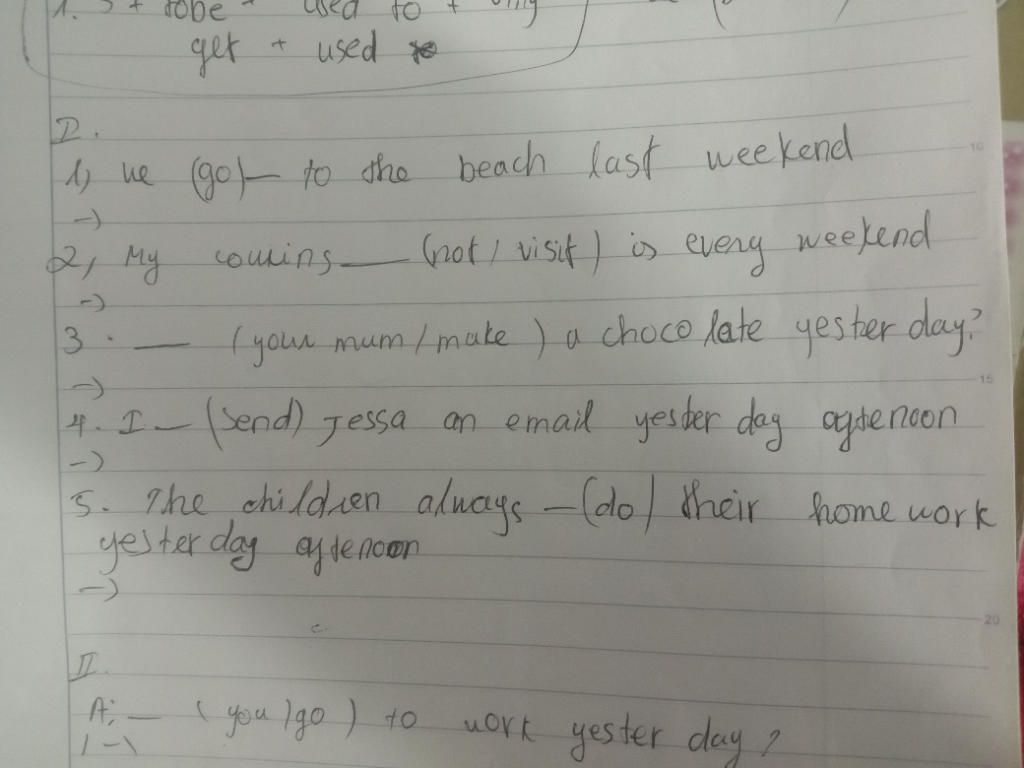 1. S + tobe + used to + Ving
get + used to
I.
1) we (go) — to the beach last weekend
->
2, My cousins — (not / visit) is every weekend
->
3. — (your mum / make) a chocolate yester day?
->
4. I — (send) Jessa an email yester day aftenoon
->
5. The children always — (do) their home work
yester day aftenoon
->
II.
A: — (you / go) to work yester day ?